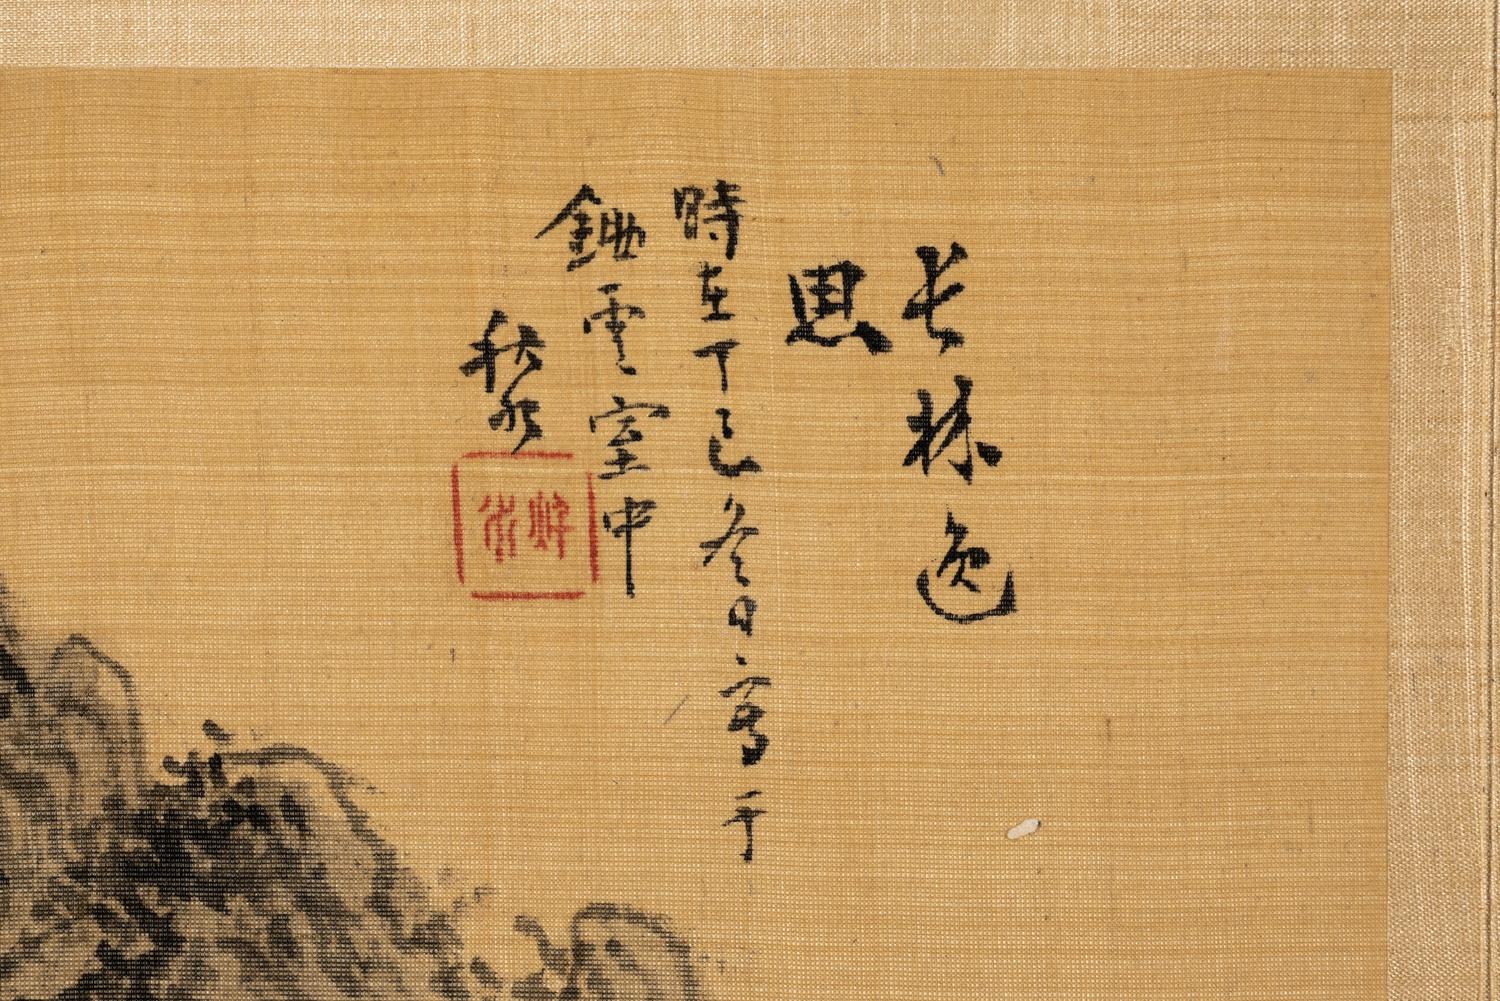 長林逸
思
時在丁巳冬日寫于
鋤雲室中
秋水